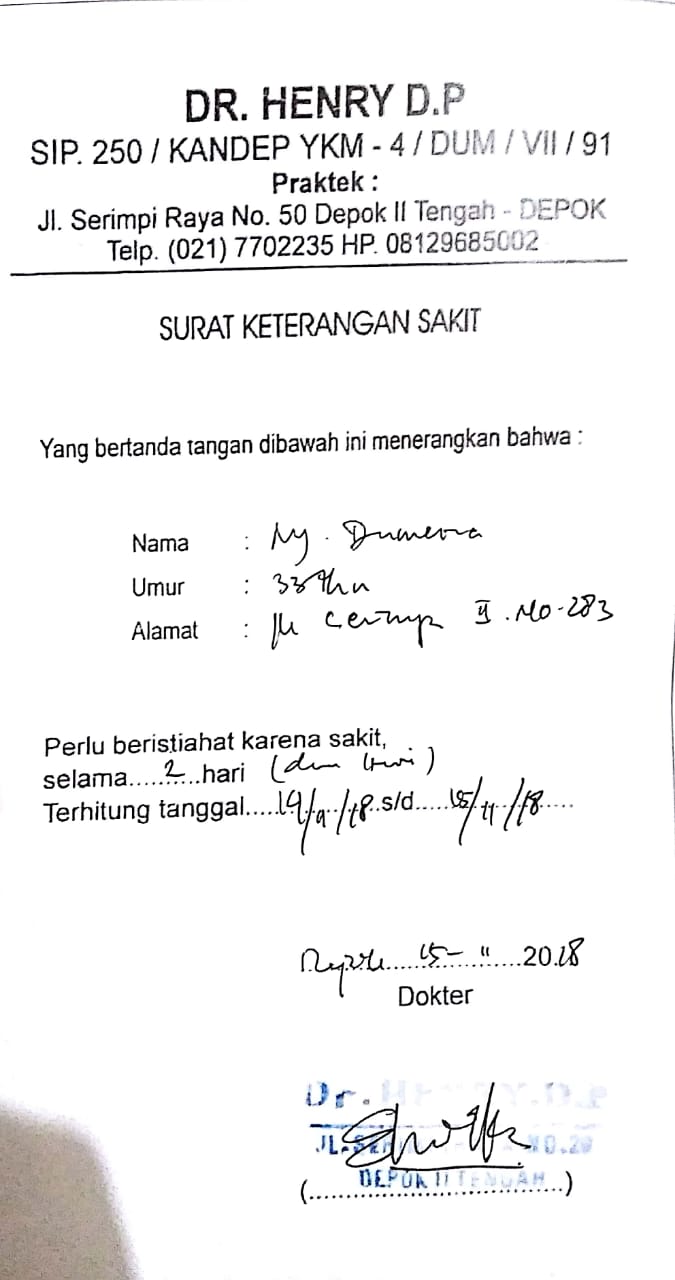 DR. HENRY D.P
SIP. 250 / KANDEP YKM - 4 / DUM / VII / 91
Praktek :
Jl. Serimpi Raya No. 50 Depok II Tengah - DEPOK
Telp. (021) 7702235 HP. 08129685002
SURAT KETERANGAN SAKIT
Yang bertanda tangan dibawah ini menerangkan bahwa :
Nama : Ny. Dumeria
Umur : 33 thn
Alamat : II . No - 283
Perlu beristiahat karena sakit,
selama.....2...hari
Terhitung tanggal.....s/d.....15/11/18....
15 - 11 ....2018
Dokter
Dr. HENRY.D.P
DEPOK II TENGAH
(..............................)